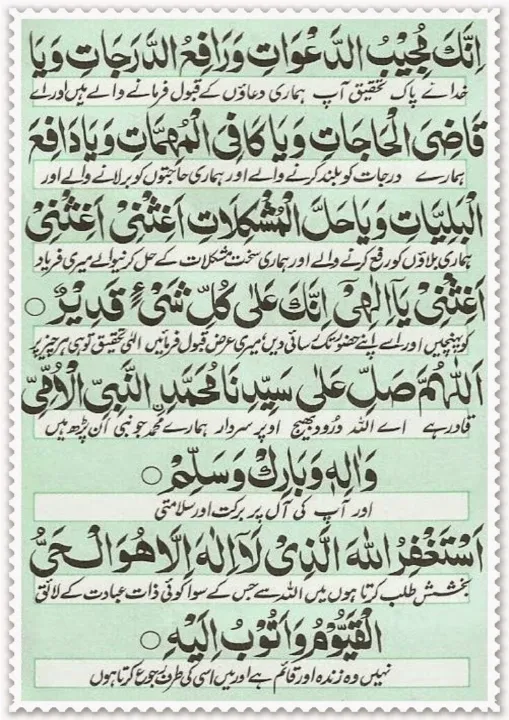 اِنَّكَ مُجِيْبُ الدَّعْوَاتِ وَرَافِعُ الدَّرَجَاتِ وَيَا
خدائے پاک تحقیق آپ ہماری دعاؤں کے قبول فرمانے والے ہیں اور اے
قَاضِىَ الْحَاجَاتِ وَيَا كَافِىَ الْمُهِمَّاتِ وَيَا دَافِعَ
ہمارے درجات کو بلند کرنے والے اور ہماری حاجتوں کو بر لانے والے اور
الْبَلِيَّاتِ وَيَا حَلَّ الْمُشْكِلَاتِ اَغِثْنِىْ اَغِثْنِىْ
ہماری بلاؤں کو رفع کرنے والے اور ہماری سخت مشکلات کے حل کرنیوالے میری فریاد
اَغِثْنِىْ يَآ اِلٰهِىْ اِنَّكَ عَلٰى كُلِّ شَىْءٍ قَدِيْرٌ ○
کو پہنچیں اور اے اپنے حضور تک رسائی دیں میری عرض قبول فرمائیں الٰہی تحقیق تو ہی ہر چیز پر
اَللّٰهُمَّ صَلِّ عَلٰى سَيِّدِنَا مُحَمَّدِنِ النَّبِىِّ الْاُمِّىِّ
قادر ہے اے اللہ درود بھیج اوپر سردار ہمارے محمد جو نبی اَن پڑھ ہیں
وَاٰلِهٖ وَبَارِكْ وَسَلِّمْ ○
اور آپ کی آل پر برکت اور سلامتی
اَسْتَغْفِرُ اللهَ الَّذِىْ لَآ اِلٰهَ اِلَّا هُوَ الْحَىُّ
بخشش طلب کرتا ہوں میں اللہ سے جس کے سوا کوئی ذات عبادت کے لائق
الْقَيُّوْمُ وَاَتُوْبُ اِلَيْهِ ○
نہیں وہ زندہ اور قائم ہے اور میں اسی کی طرف رجوع کرتا ہوں